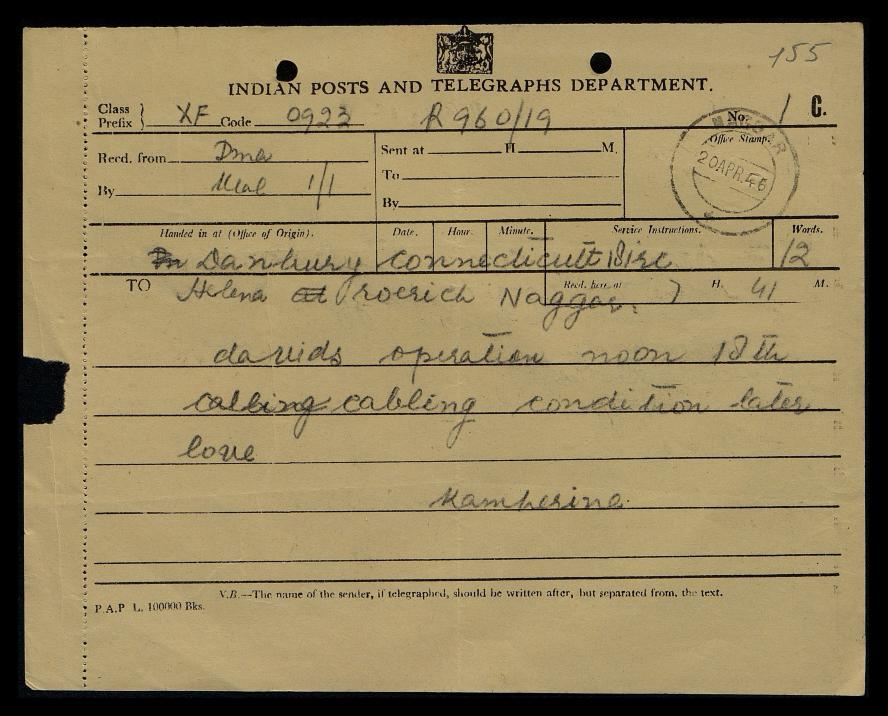 155
INDIAN POSTS AND TELEGRAPHS DEPARTMENT.
Class Prefix } XF Code 0923 R 960/19 No. 1 C.
NAGGAR
20 APR. 46
Office Stamp.
Recd. from Dma Sent at H M.
To
By 1/1 By
Handed in at (Office of Origin). Date. Hour. Minute. Service Instructions. Words.
Danbury connecticutt 12
TO Helena roerich Naggar. Recd. here at 7 H. 41 M.
davids operation noon 18th
calling cabling condition later
love
Kamherina
N.B.—The name of the sender, if telegraphed, should be written after, but separated from, the text.
P.A.P L. 100000 Bks.